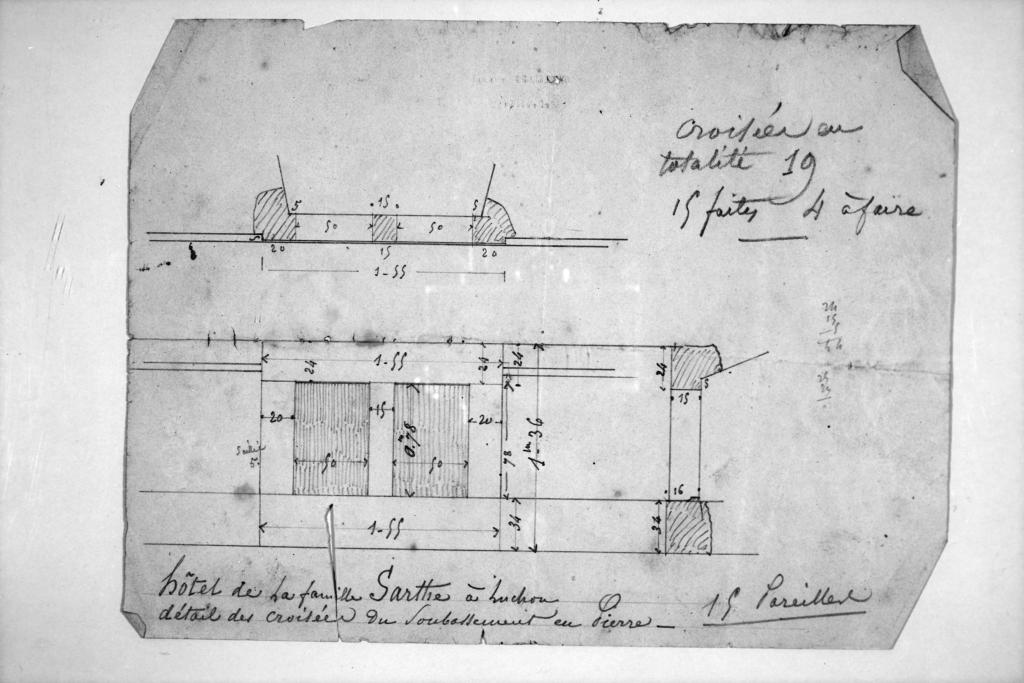 croisées en
totalité 19
15 faites 4 à faire
5 15 5
50 50
20 15 20
1-55
1-55
24 24 24 24
20 15 20 15
0.m78
50 50
78
1m-36
16
1-55
34 34
hôtel de la famille Sarthe à Luchon
détail des croisées du soubassement en Pierre
15 Pareilles